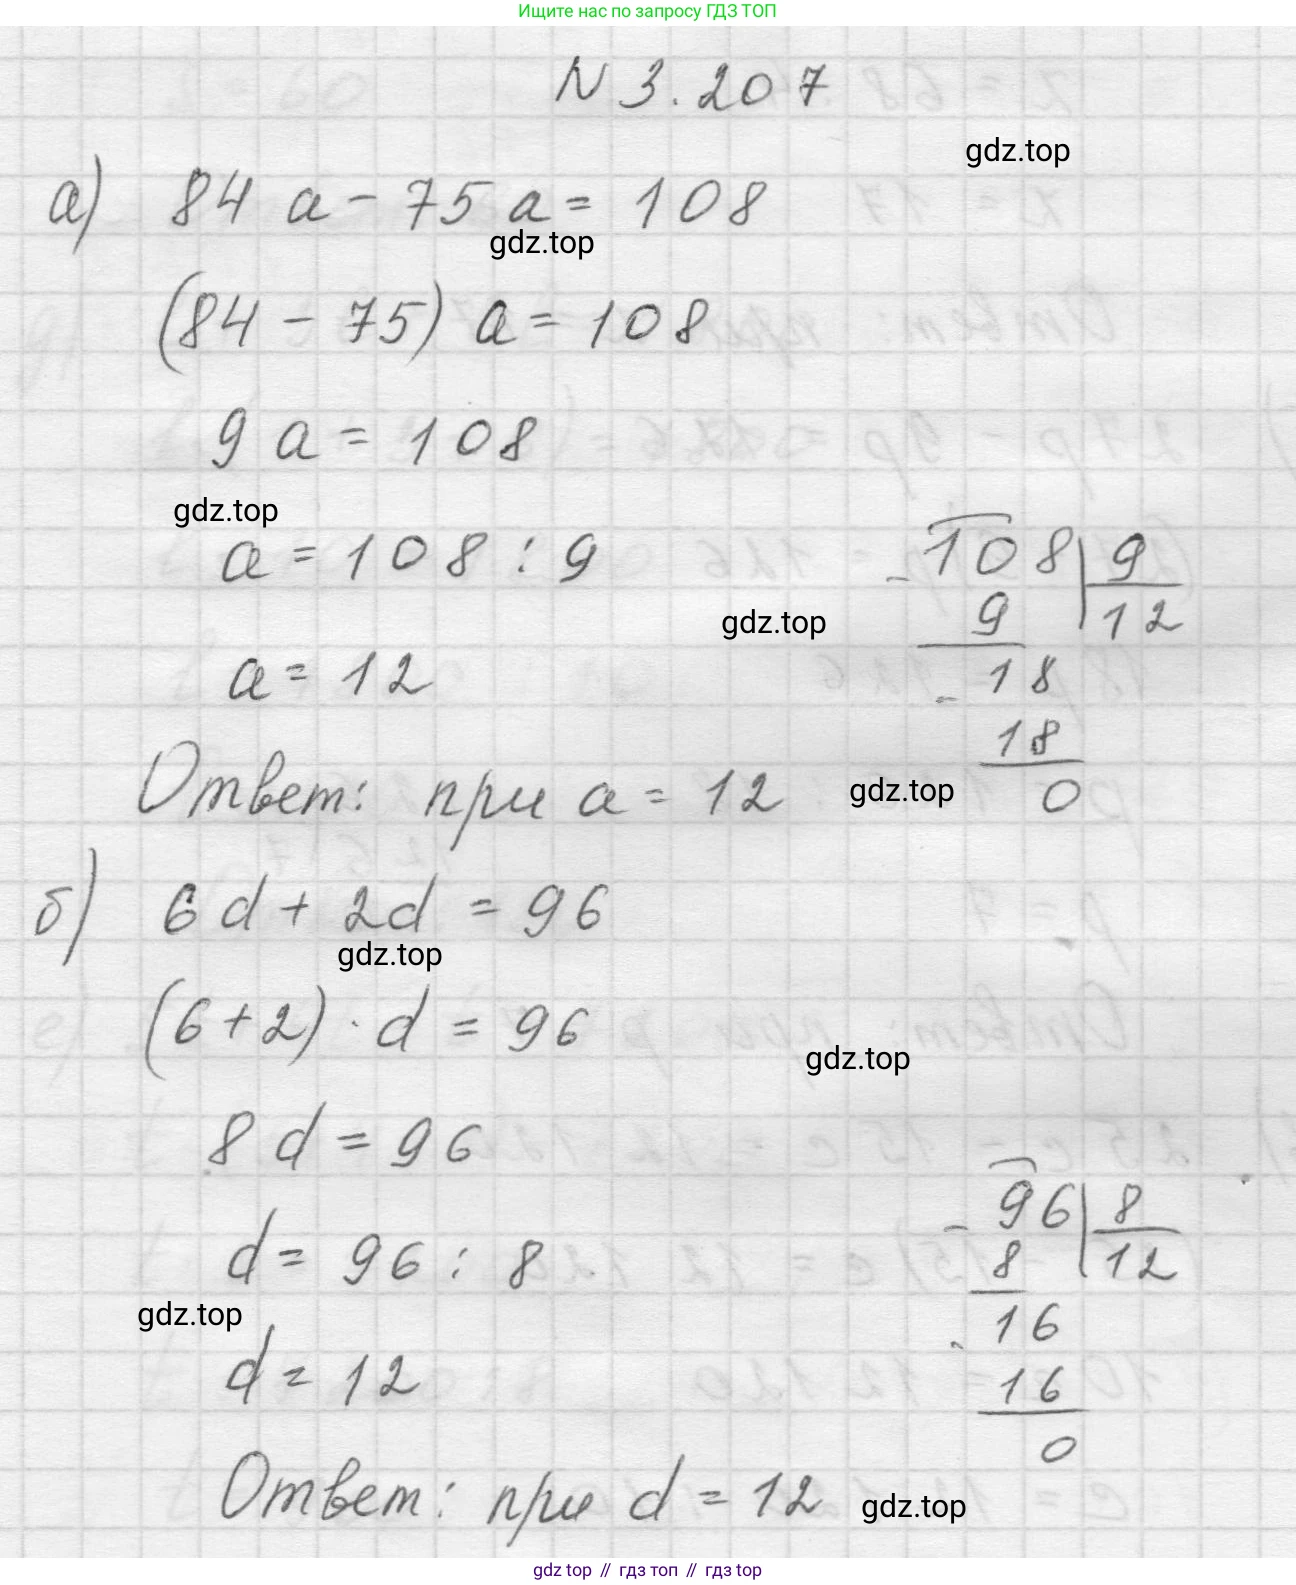 Ищите нас по запросу ГДЗ ТОП
N 3.207
gdz.top
а) 84 a - 75 a = 108
gdz.top
(84 - 75) a = 108
9 a = 108
gdz.top
a = 108 : 9
- 108 9
gdz.top
9 12
a = 12
- 18
18
Ответ: при a = 12
gdz.top
0
б) 6 d + 2d = 96
gdz.top
(6 + 2) · d = 96
gdz.top
8 d = 96
- 96 8
d = 96 : 8
8 12
gdz.top
- 16
d = 12
16
0
Ответ: при d = 12
gdz.top
gdz top // гдз топ // гдз top